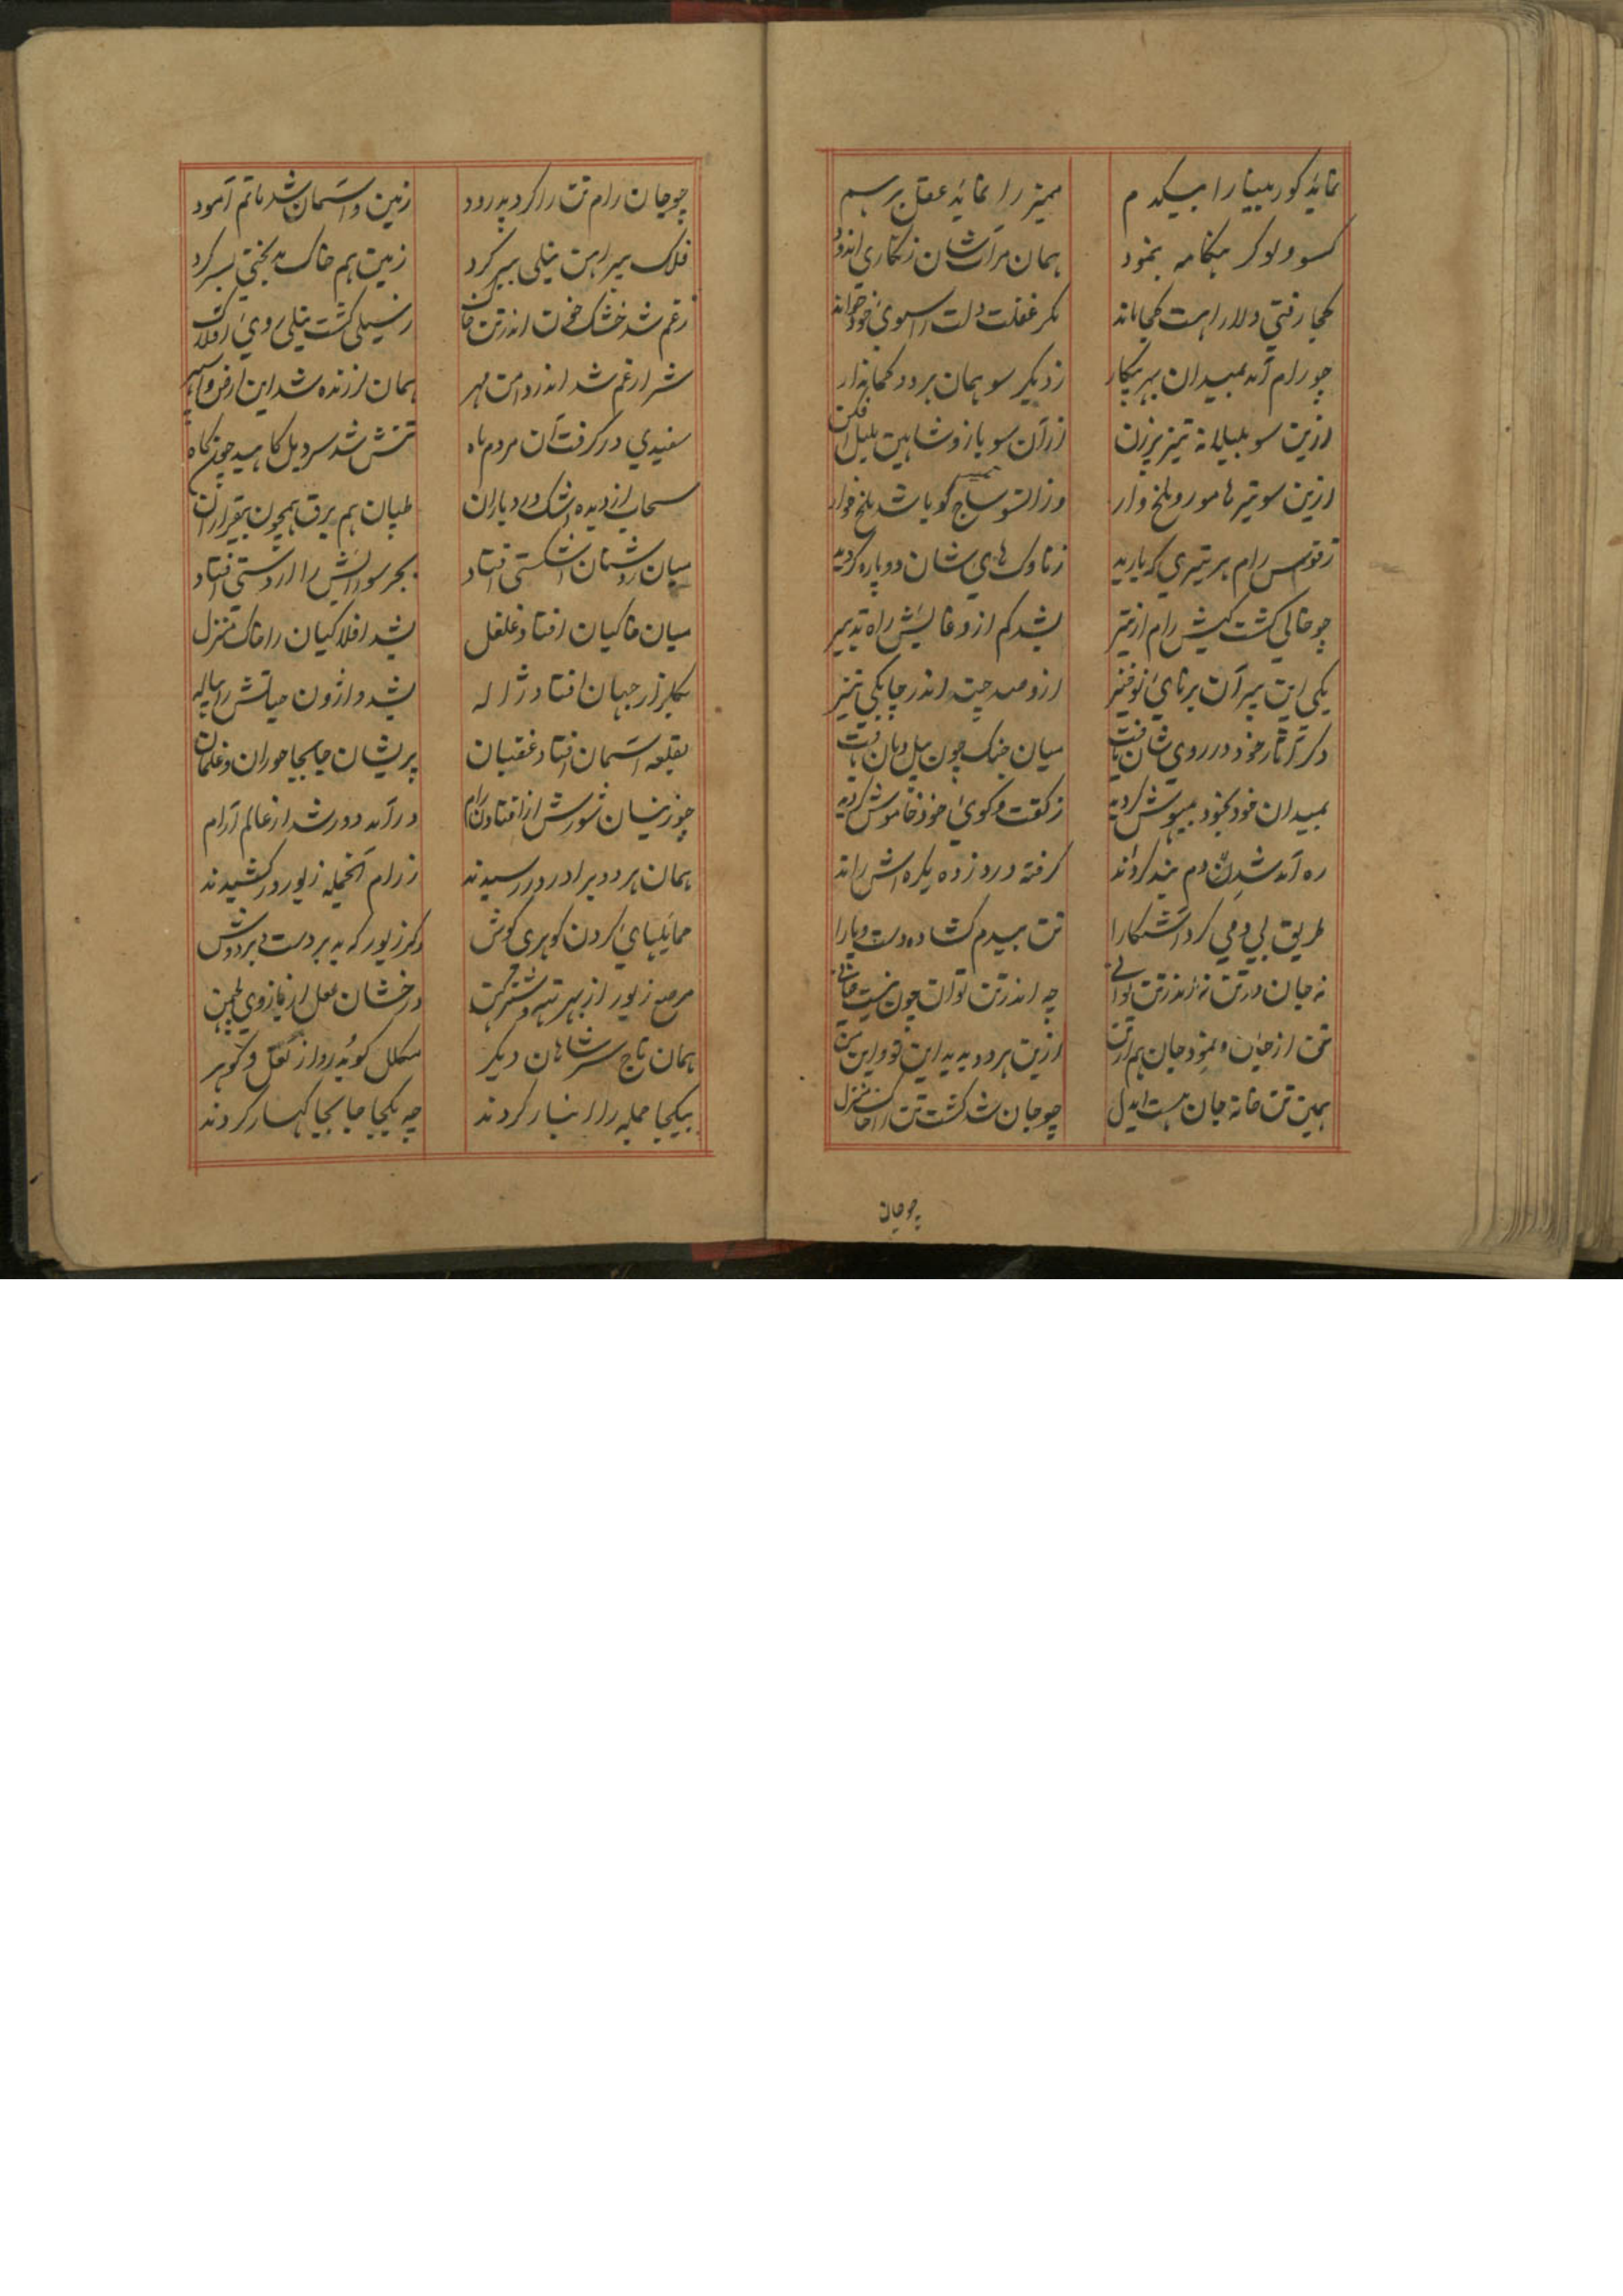 نماید کور بینا را بیکدم ممیز را نماید عقل برهم
کسو ولوکر هنگامه بنمود همان مرآت شان زنگاری اندود
کجا رفتی دلا راهت کجا ماند مگر غفلت دلت را سوی خود خواند
چو رام آمد بمیدان بهر پیکار ز دیگر سو همان هر دو کماندار
ازین سو بلبلانه تیز پرزن از آن سو باز و شاهین بلبل افکن
ازین سو تیرها مور و ملخ وار وزانسو ساج گویا شد ملخ خوار
ز قوس رام هر تیری که بارید ز ناوک های شان دو پاره گردید
چو خالی گشت کیش رام از تیر بشد کم از وغایش راه تدبیر
یکی این پیر آن برنای نوخیز ازو صد چند اندر چابکی تیز
دگر آثار خود در روی شان یافت میان جنگ چون پیل دمان تافت
بمیدان خود بخود بیهوش گردید ز گفت و گوی خود خاموش گردید
ره آمد شدن دم بند کردند گرفته درد زده یکره اش راند
طریق بی دمی کرد آشکارا تن بیدم کشاده دست و پا را
نه جان در تن نه اندر تن توانی چه اندر تن توان چون نیست جانی
تن از جان و نمود جان هم از تن ازین هر دو پدید این تو و این من
همین تن خانه جان هست ایدل چو جان شد گشت تن را خاک منزل
چو جان
چو جان رام تن را کرد پدرود زمین و آسمان شد ماتم آمود
فلک پیراهن نیلی ببر کرد زمین هم خاک بدبختی بسر کرد
ز غم شد خشک خون اندر تن خاک ز سیلی گشت نیلی روی افلاک
شرار غم شد اندر دامن مهر همان لرزنده شد این ارض و سپهر
سفیدی در گرفت آن مردم ماه تنش شد سر دل کاهید چون کاه
سحاب از دیده اشک درد باران طپان هم برق همچون بیقراران
میان روشنان شکستی افتاد بحر سو دانش را از دستی افتاد
میان خاکیان افتاد غلغل بشد افلاکیان را خاک منزل
بگلزار جهان افتاد ژاله بشد واژون حیاتش را پیاله
بقلعه آسمان افتاد غفتیان پریشان جابجا حوران و غلمان
چو زینسان شورش از افتادن رام در آمد دور شد از عالم آرام
همان هر دو برادر در رسیدند ز رام آنجمله زیور در کشیدند
حمایلهای گردن گوهری گوش دگر زیور که بد بر دست و بر دوش
مرصع زیور از بهر تهیدشتر کن درخشان لعل از بازوی لچمن
همان تاج سر شاهان دیگر مکلل گوید رو از لعل و گوهر
بیکجا جمله را انبار کردند چه یکجا جابجا کهسار کردند